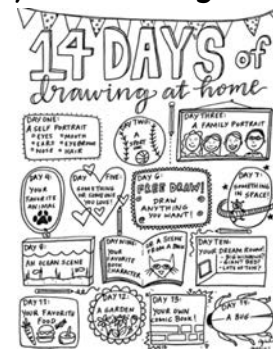 14 DAYS of
drawing at home
DAY ONE:
A SELF PORTRAIT
*EYES *MOUTH
*EARS *EYEBROWS
*NOSE *HAIR
DAY TWO:
A
SPORT
DAY THREE:
A FAMILY PORTRAIT
DAY 4:
YOUR
FAVORITE
ANIMAL
DAY FIVE:
SOMETHING
OR SOMEONE
YOU LOVE!
DAY 6:
FREE DRAW!
DRAW
ANYTHING
YOU WANT!
DAY 7:
SOMETHING
IN SPACE!
DAY 8:
AN OCEAN SCENE
DAY NINE:
YOUR
FAVORITE
BOOK
CHARACTER
OR A SCENE
FROM A BOOK
DAY TEN:
YOUR DREAM ROOM!
BIG WINDOWS?
GIANT BED?
LOTS OF TOYS?
DAY 11:
YOUR FAVORITE
FOOD
DAY 12:
A GARDEN
DAY 13:
YOUR OWN
COMIC BOOK!
DAY 14:
A BUG